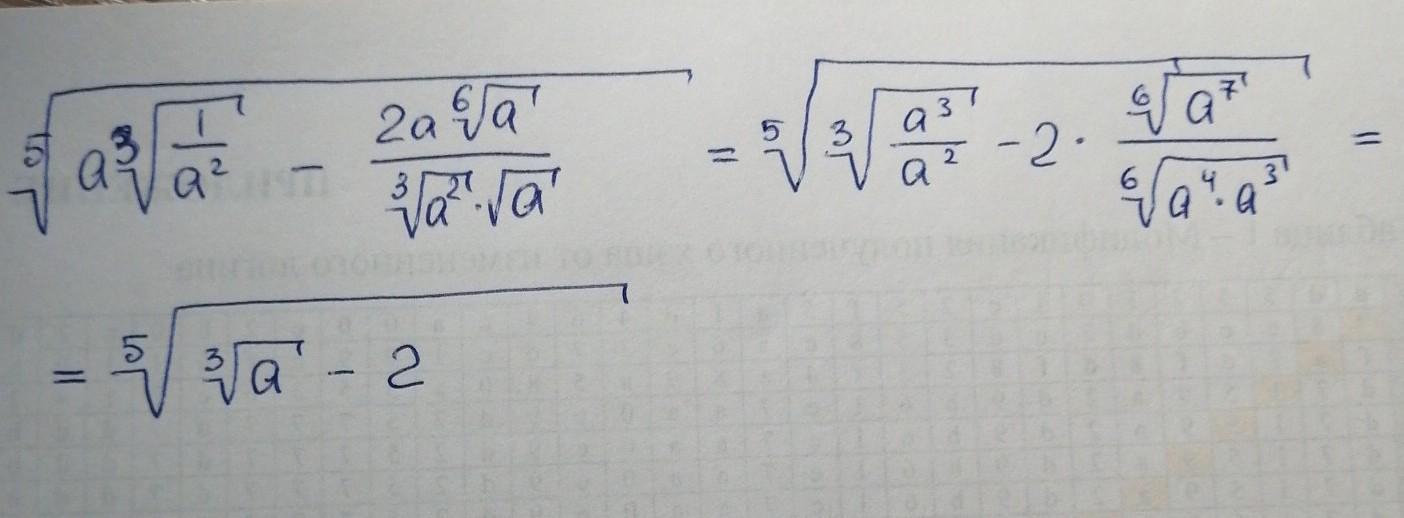 ⁵√(a ³√(1/a²) − (2a ⁶√a)/(³√a² · √a)) = ⁵√(³√(a³/a²) − 2 · ⁶√a⁷/⁶√(a⁴ · a³)) =
= ⁵√(³√a − 2)